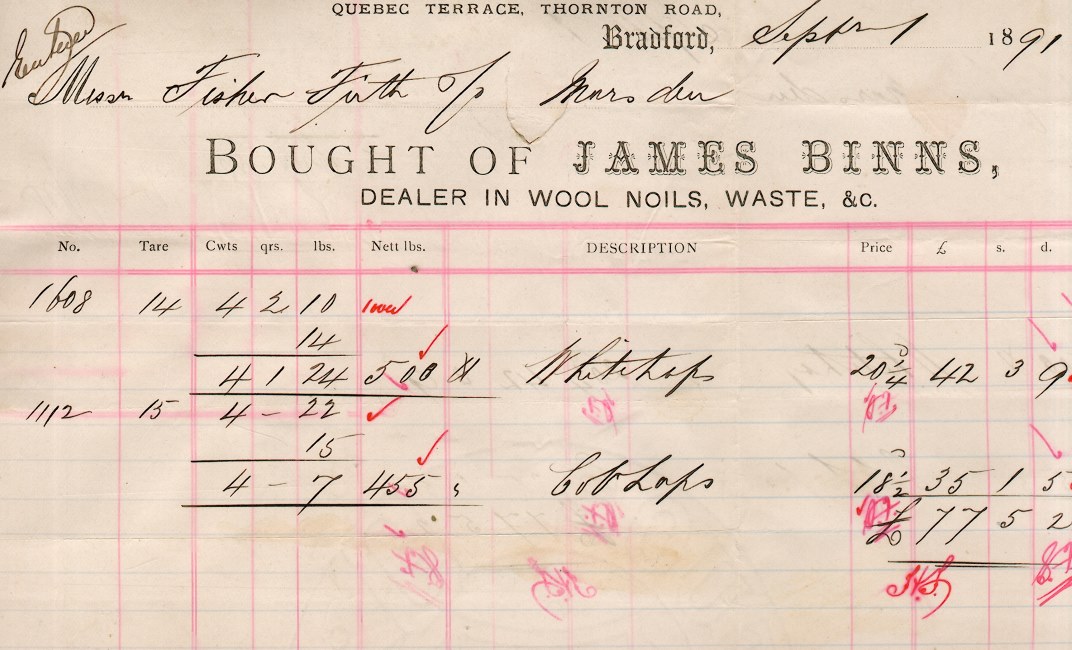 QUEBEC TERRACE, THORNTON ROAD,
Bradford, Septr 1 1891
Messrs Fisher Firth & Co Marsden
BOUGHT OF JAMES BINNS,
DEALER IN WOOL NOILS, WASTE, &c.
No. Tare Cwts qrs. lbs. Nett lbs. DESCRIPTION Price £ s. d.
1608 14 4 2 10
14
4 1 24 500 White Laps 20 1/4 42 3 9
1112 15 4 - 22
15
4 - 7 455 Cob Laps 18 1/2 35 1 5
£ 77 5 2